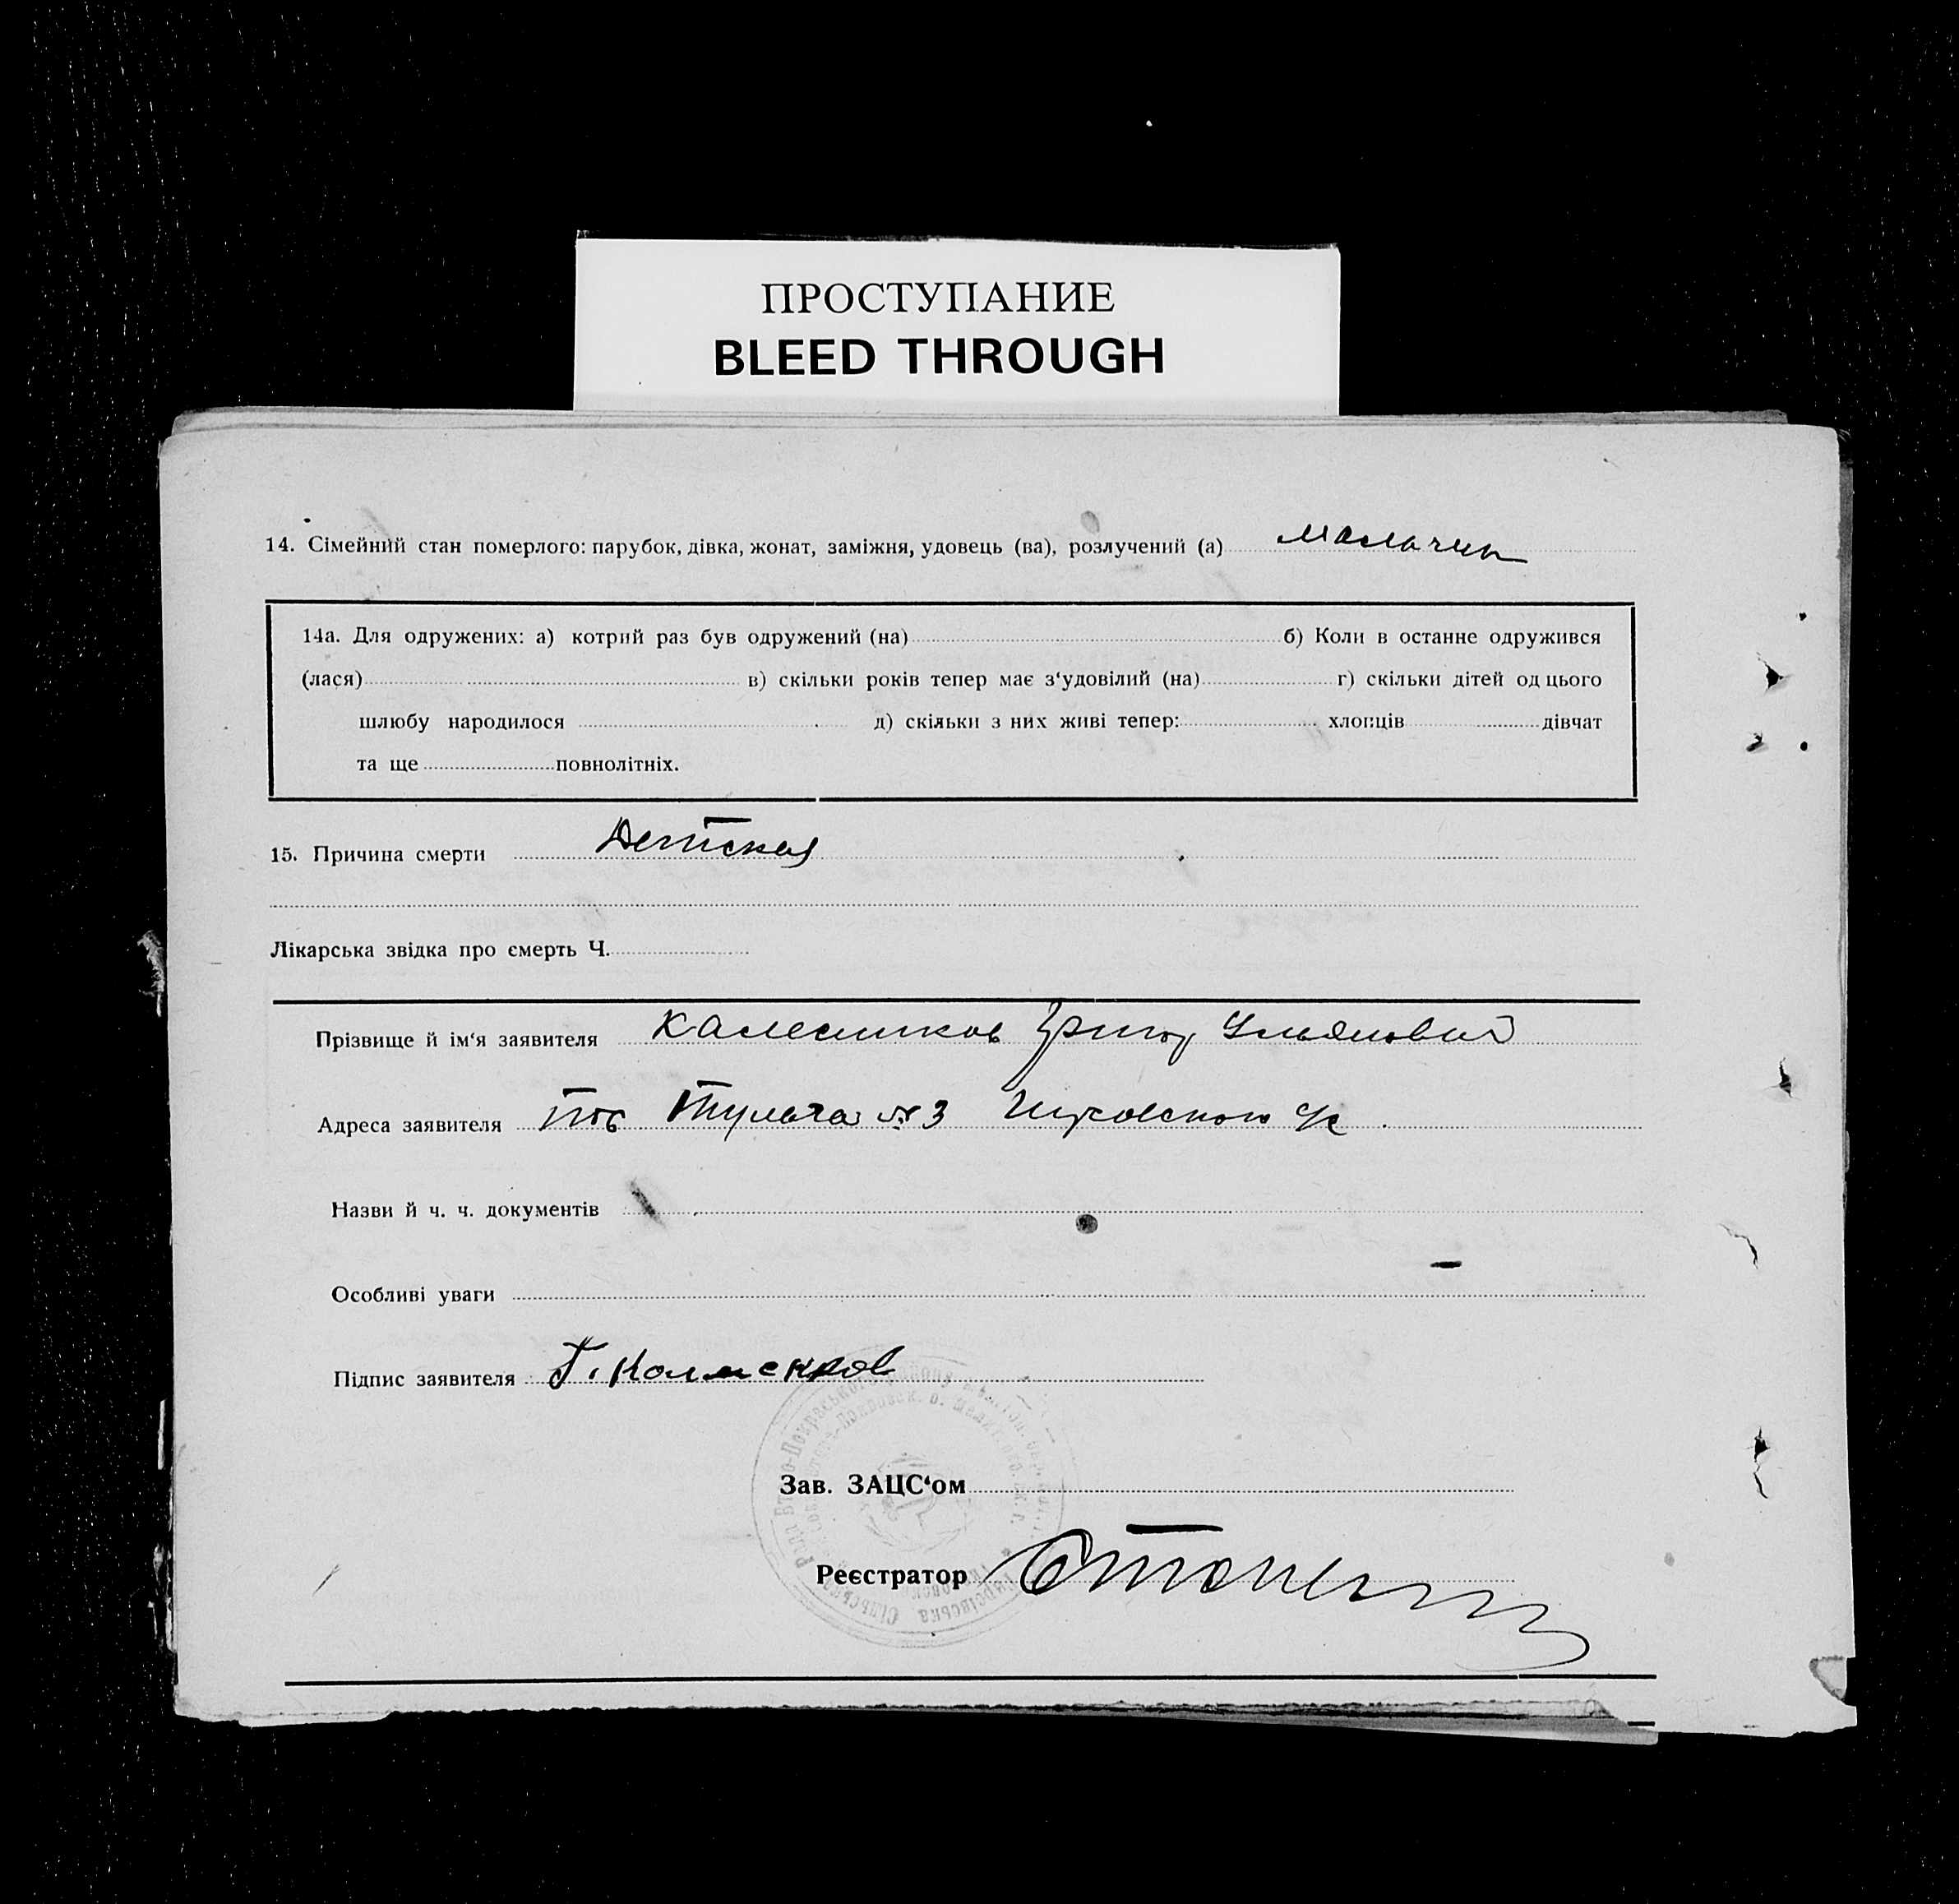 ПРОСТУПАНИЕ
BLEED THROUGH
14. Сімейний стан померлого: парубок, дівка, жонат, заміжня, удовець (ва), розлучений (а) мальчик
14а. Для одружених: а) котрий раз був одружений (на) б) Коли в останнє одружився
(лася) в) скільки років тепер має з'удовілий (на) г) скільки дітей од цього
шлюбу народилося д) скільки з них живі тепер: хлопців дівчат
та ще повнолітніх.
15. Причина смерти Детская
Лікарська звідка про смерть Ч.
Прізвище й ім'я заявителя Калесников Григор Ульянович
Адреса заявителя №3
Назви й ч. ч. документів
Особливі уваги
Підпис заявителя Г.
Зав. ЗАЦС'ом
Реєстратор